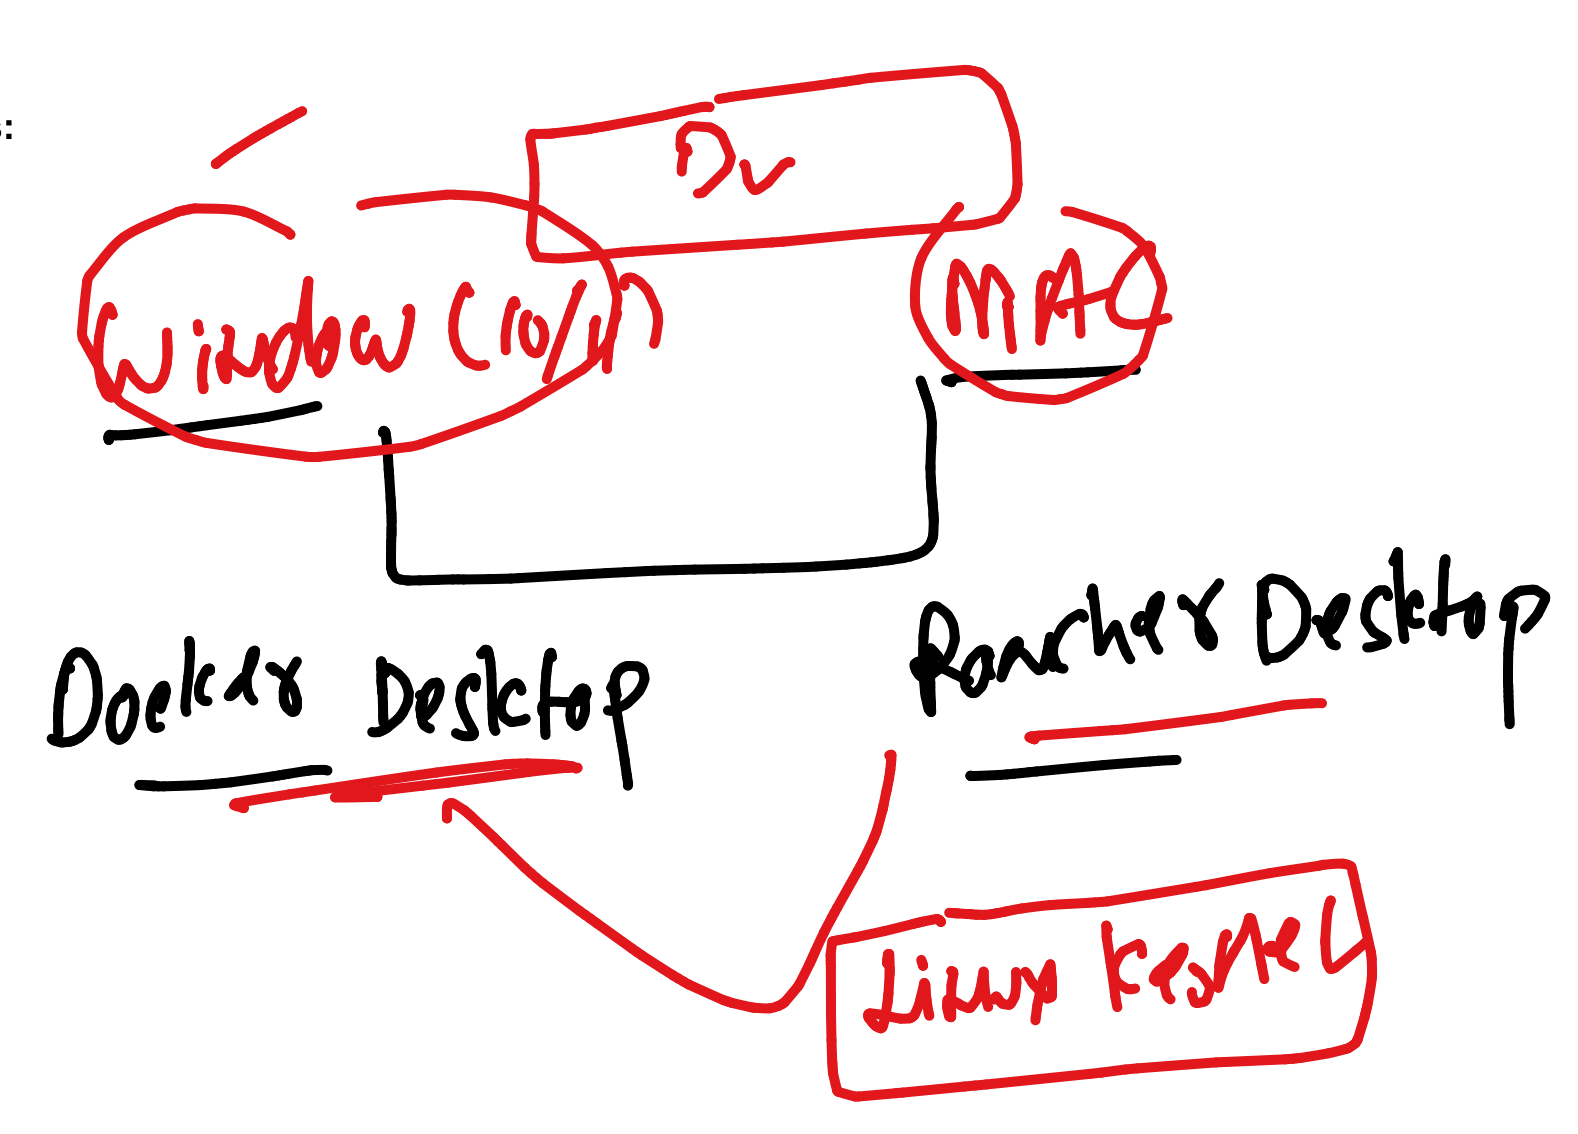 s:
Dv
Window (10/11)
MAC
Docker Desktop
Rancher Desktop
Linux Kernel